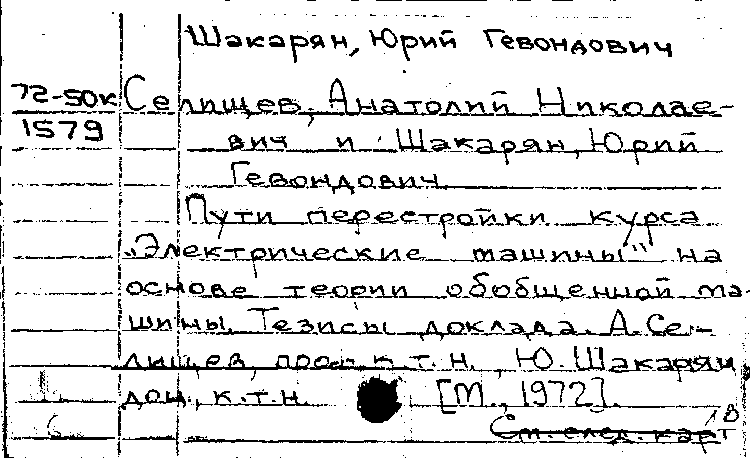 Шакарян, Юрий Гевондович
72-50к
1579
Селищев, Анатолий Николае-
вич и Шакарян, Юрий
Гевондович
Пути перестройки курса
„Электрические машины" на
основе теории обобщенной ма-
шины. Тезисы доклада. А. Се-
лищев, проф. к.т.н., Ю. Шакарян
доц., к.т.н. [М., 1972].
См. след. карт